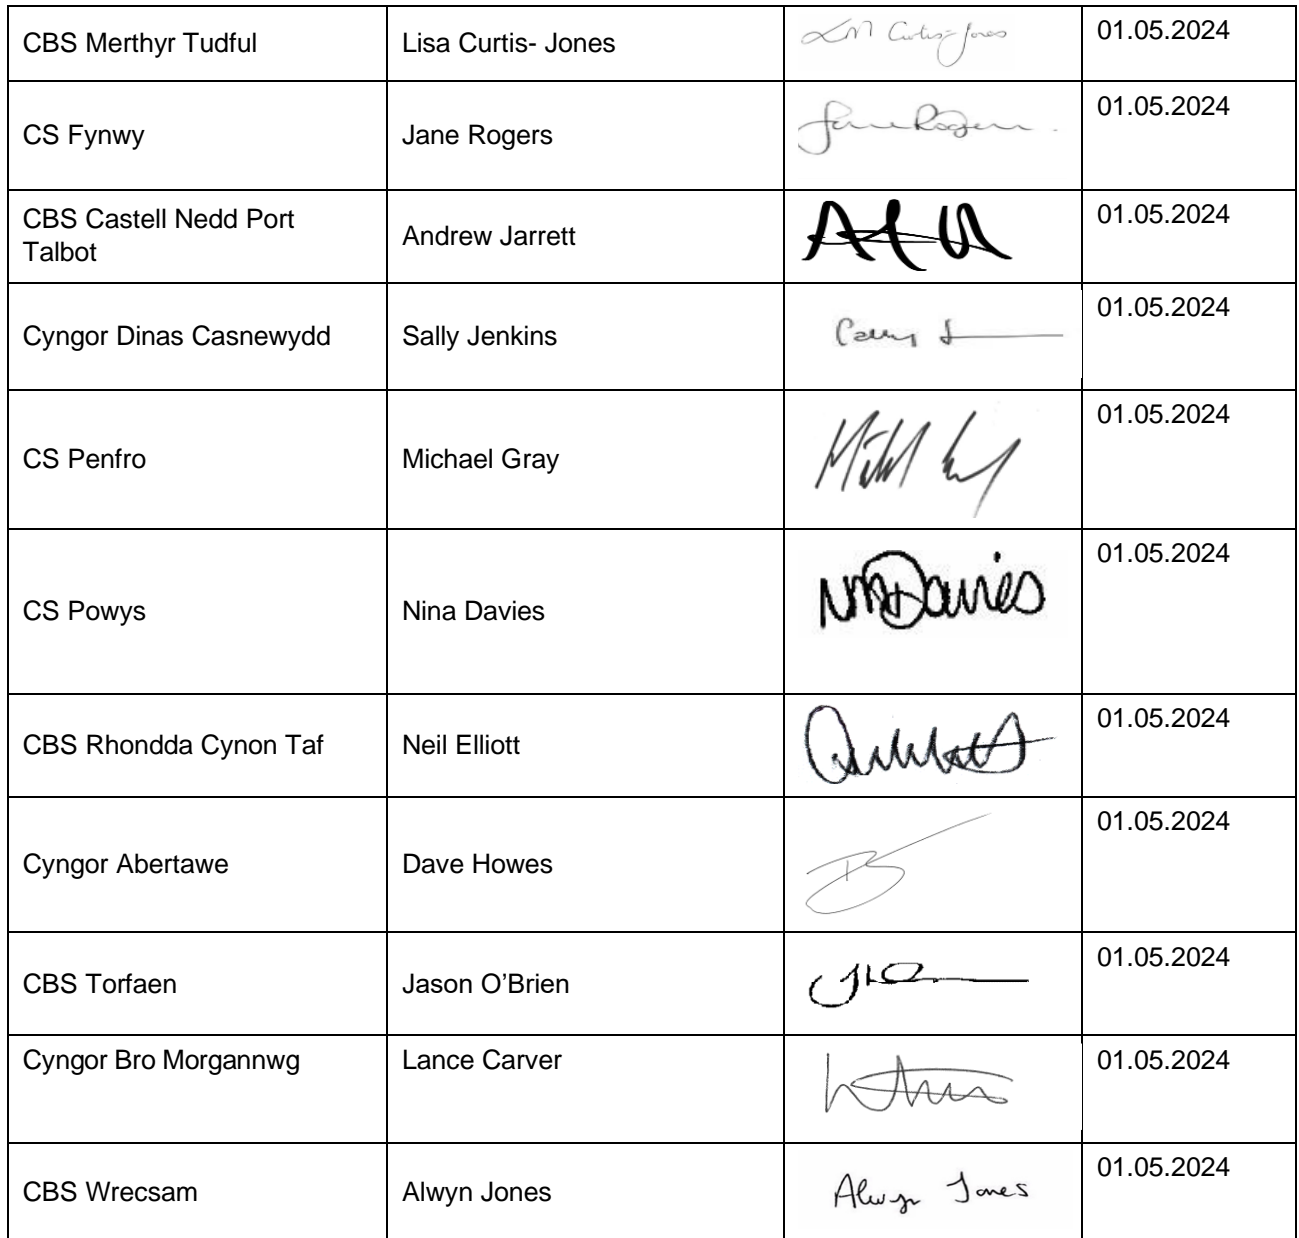 CBS Merthyr Tudful Lisa Curtis- Jones LM Curtis-Jones 01.05.2024
CS Fynwy Jane Rogers Jane Rogers 01.05.2024
CBS Castell Nedd Port
Talbot Andrew Jarrett 01.05.2024
Cyngor Dinas Casnewydd Sally Jenkins 01.05.2024
CS Penfro Michael Gray 01.05.2024
CS Powys Nina Davies NMDavies 01.05.2024
CBS Rhondda Cynon Taf Neil Elliott 01.05.2024
Cyngor Abertawe Dave Howes 01.05.2024
CBS Torfaen Jason O’Brien 01.05.2024
Cyngor Bro Morgannwg Lance Carver 01.05.2024
CBS Wrecsam Alwyn Jones Alwyn Jones 01.05.2024